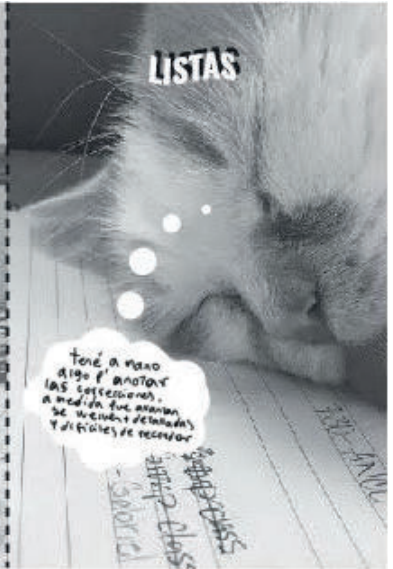 LISTAS
tené a mano
algo p' anotar
las correcciones.
a medida que avanzan
se vuelven detalladas
y difíciles de recordar